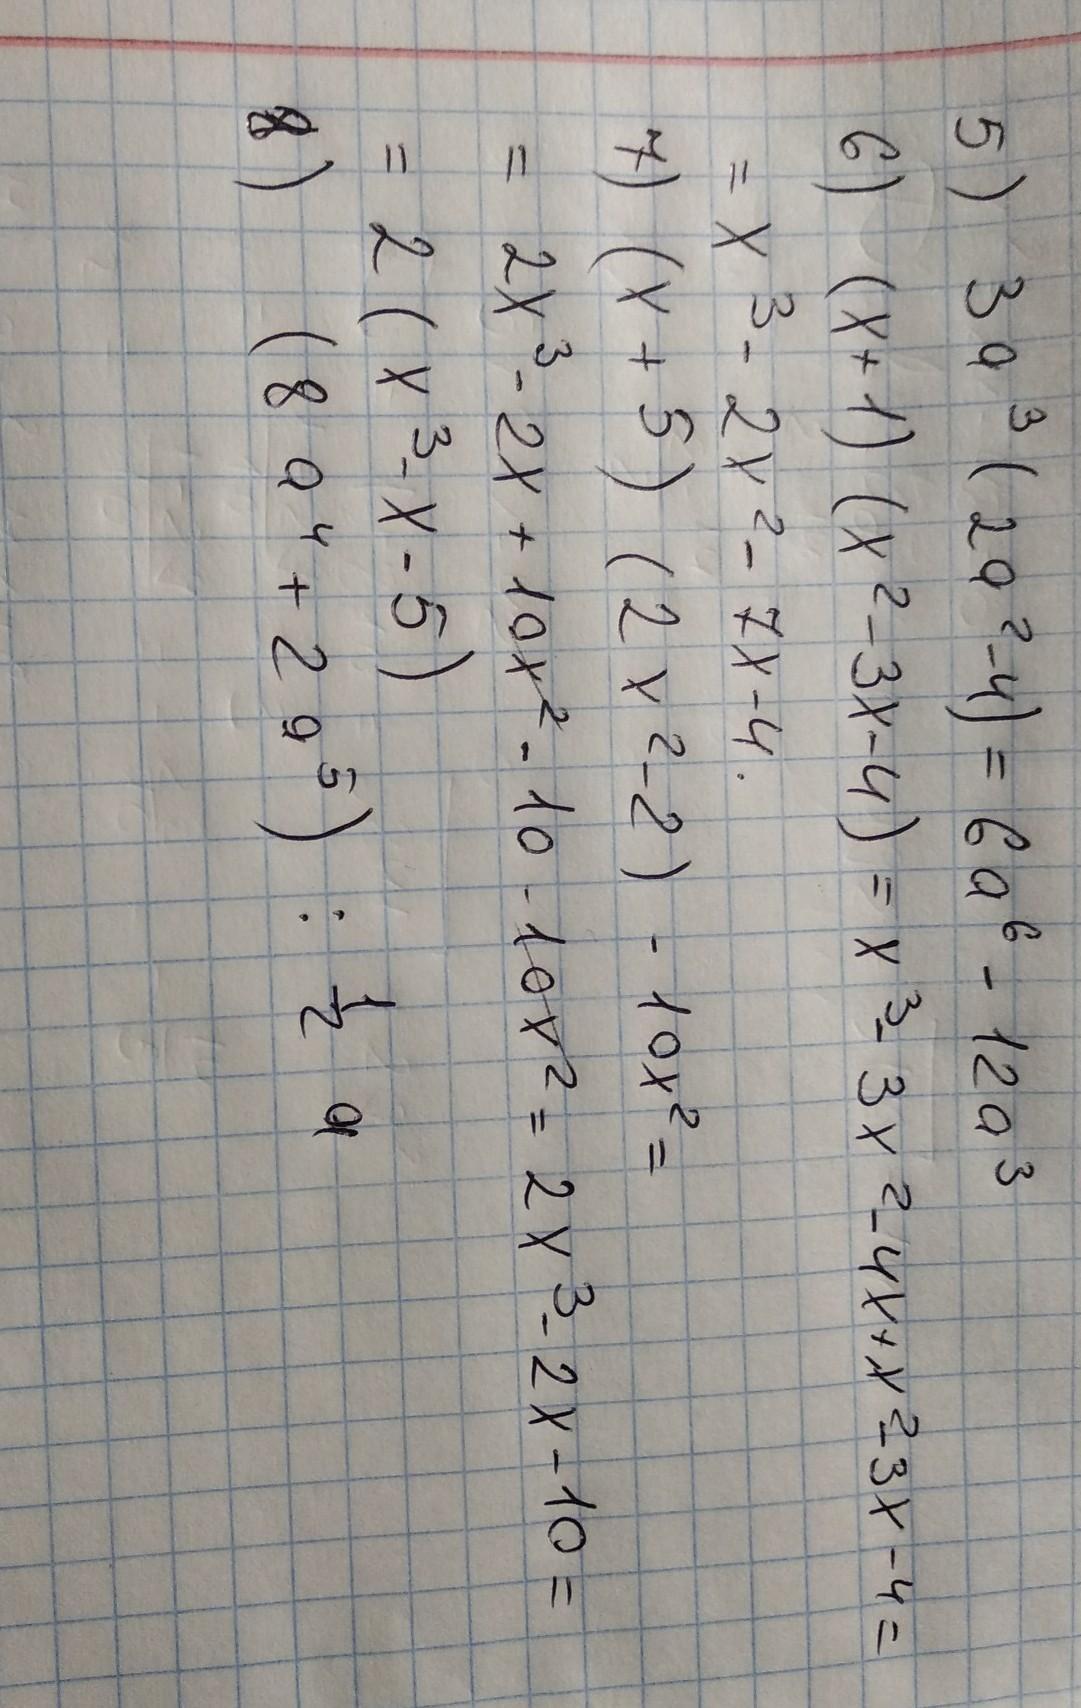 5) 3a³(2a²-4) = 6a⁶ - 12a³
6) (x+1)(x²-3x-4) = x³-3x²-4x+x²-3x-4=
= x³-2x²-7x-4.
7) (x+5)(2x²-2) - 10x²=
= 2x³-2x+10x²-10-10x²=2x³-2x-10=
= 2(x³-x-5)
8) (8a⁴+2a⁵) : ½ a